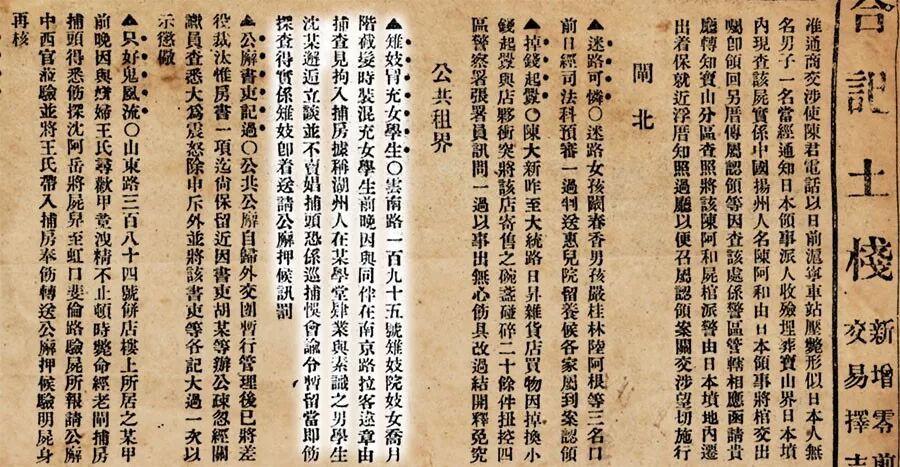 合記土棧
新增零剪
交易擇
准通商交涉使陳君電話以日前滬寧車站壓斃形似日本人無
名男子一名當經通知日本領事派人收殮埋葬寶山界日本墳
內現查該屍實係中國揚州人名陳阿和由日本領事將棺交出
囑卽領回另厝傳屬認領等因查該處係警區管轄相應函請貴
廳轉知寶山分區查照將該陳阿和屍棺派警由日本墳地內遷
出着保就近浮厝知照過廳以便召屬認領案關交涉望切施行
閘北
▲迷路可憐○迷路女孩顧春香男孩嚴桂林陸阿根等三名口
前日經司法科預審一過判送惠兒院留養候各家屬到案認領
▲掉錢起釁○陳大新昨至大統路日昇雜貨店買物因掉換小
錢起釁與店夥衝突將該店寄售之碗盞碰碎二十餘件扭控四
區警察署張署員訊問一過以事出無心飭具改過結開釋免究
公共租界
▲雉妓冒充女學生○雲南路一百九十五號雉妓院妓女喬月
階截髮時裝混充女學生前晚因與同伴在南京路拉客違章由
捕查見拘入捕房據稱湖州人在某學堂肄業與素識之男學生
沈某邂逅立談並不賣娼捕頭恐係巡捕悞會諭令暫留當卽飭
探查得實係雉妓卽着送請公廨押候訊罰
▲公廨書吏記過○公共公廨自歸外交團暫行管理後已將差
役裁汰惟房書一項迄尙保留近因書吏胡某等辦公疎忽經關
讞員查悉大爲震怒除申斥外並將該書吏等各記大過一次以
示懲儆
▲只好鬼風流○山東路三百八十四號餅店樓上所居之某甲
前晚因與孀婦王氏尋歡甲竟洩精不止頓時斃命經老閘捕房
捕頭得悉飭探沈阿岳將屍舁至虹口斐倫路驗屍所報請公廨
中西官蒞驗並將王氏帶入捕房奉飭轉送公廨押候驗明屍身
再核